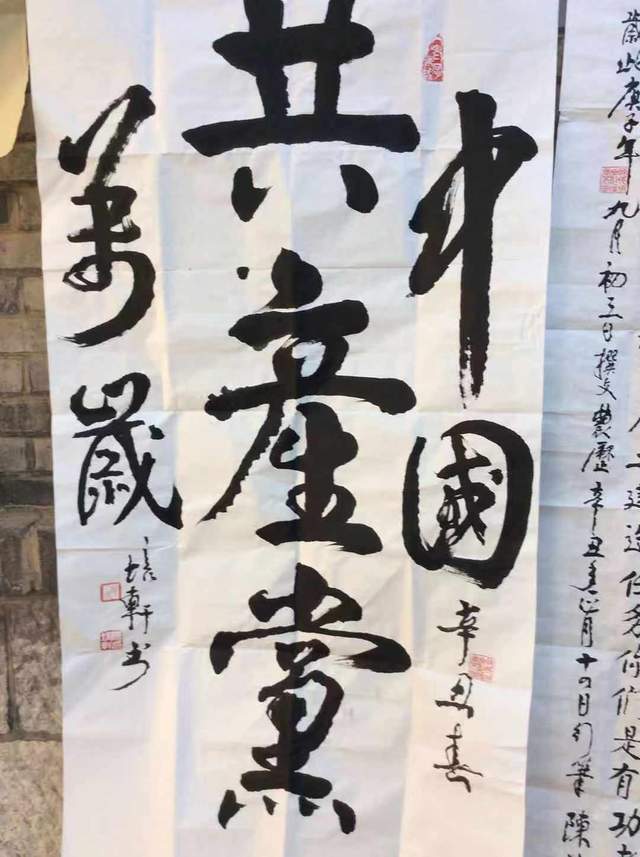 歲此庚子年九月初三日撰文農歷辛丑年正月十四日行筆陳
建造任務你們是有功
中國
辛丑春
共產黨
萬歲
培軒书